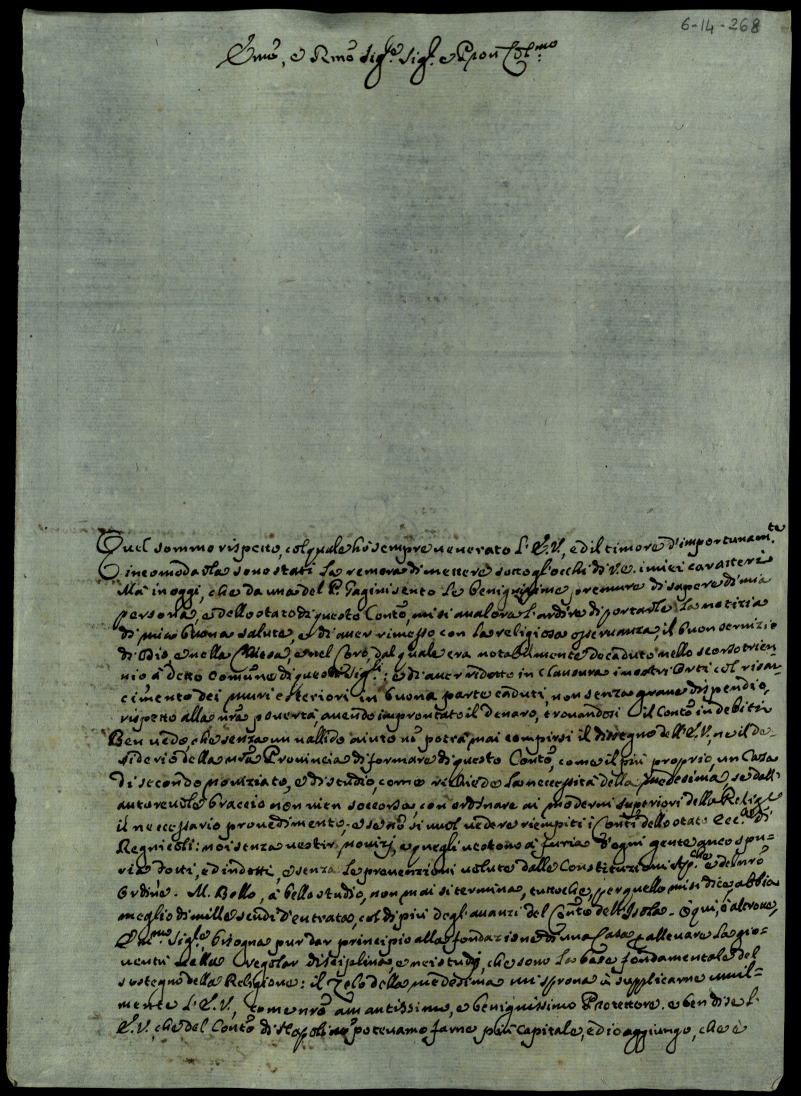 6-14-268
Emo, e Rmo Sigre Sigr. e Pron Colmo
Quel sommo rispetto, col quale hò sempre venerato l'E.V., ed il timore d'importunamte
incomodarla sono stati la remora di mettere sotto gl'occhi di V.E. i miei caratteri
Mà in oggi, che da una del P. Gagini sento le benignissime premure di sapere di mia
persona, e dello stato di questo Conto, mi si avalora l'ardire di portarle la notizia
di mia buona salute, e di aver rimesso con la religiosa osservanza, il buon servizio
di Dio, e nella Chiesa, e nel Coro, dal quale era notabilmente decaduto nello scorso trien-
nio à detto Comune di questi Sigri: e di aver ridotto in Clausura i nostri Orti col risar-
cimento dei muri esteriori in buona parte caduti, non senza grave dispendio,
rispetto alla nra povertà, avendo improntato il denaro, trovandosi il Conto in debiti
Ben vedo, che senza un vallido aiuto nō potrà mai compirsi il disegno dell'E.V., ne il de-
siderio della nrā Provincia di formare di questo Conto, come il più proprio, un Casa
di secondo noviziato, e di studio, come richiede la necessità della medesima, se dall'
autorevole braccio non vien soccorsa, con ordinare ai moderni superiori della Religne
il necessario provedimento, e se nō si vuol vedere riempiti i Conti dello stato Eccco di
Regnicoli: noi senza vestir novizj, e quegli vestono à furia d'ogni gente anco spu-
ria dotti, ed indotti, e senza le prevenzioni volute dalle Constituzioni Apche e del nrō
Ordine. M. Bello, à bello studio, non mai si termina, tuttoche, per quello mi si dice, abbia
meglio di mille scudi d'entrata, col di più degl'avanzi del Conto dell'Isola. O quì, ò altrove,
Emo Sigre bisogna pur dar principio alla fondazione di una Casa, e allevare la gio-
ventù nella regolar disciplina, e nei studj, che sono la base fondamentale del
sostegno della Religione: il zelo della medesima mi sprona à supplicarne umil-
mente l'E.V., come nrō amantissimo, e benignissimo Protettore. e ben disse l'
E.V., che del Conto di Napoli nō potevamo farne più capitale, ed io aggiungo, che è